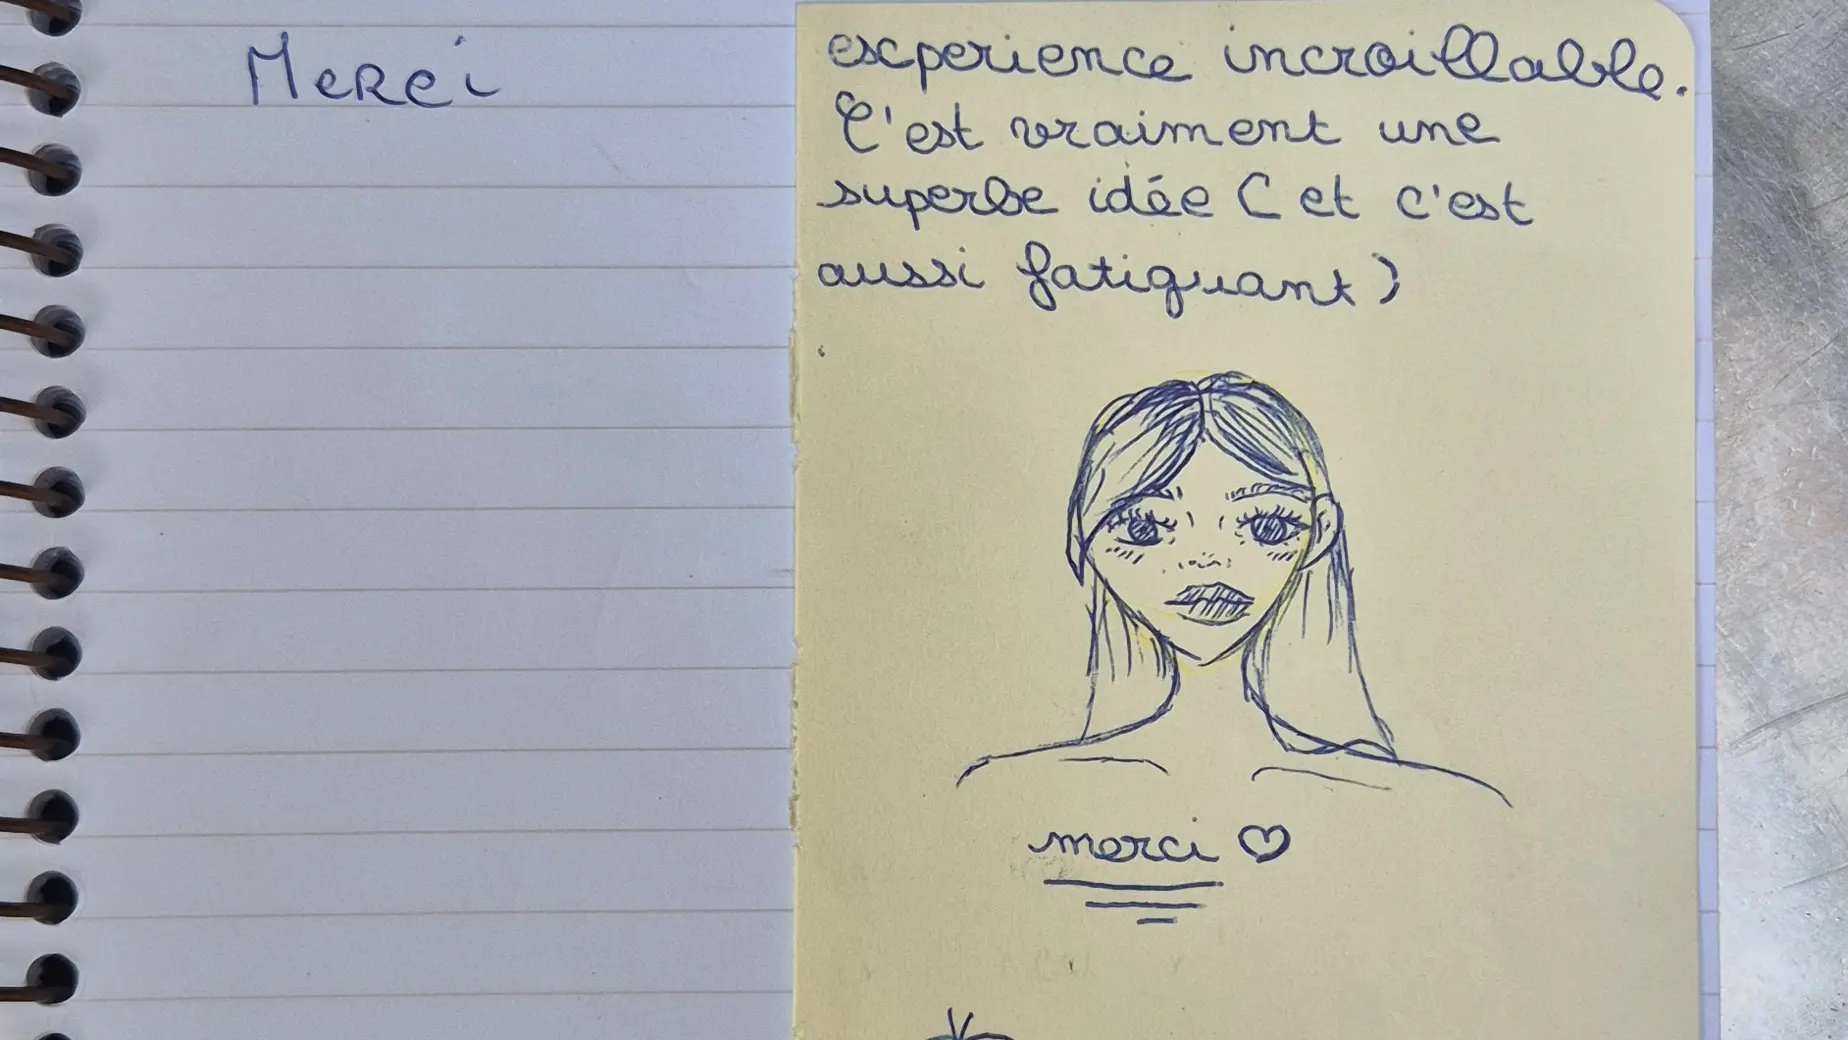 Merci
escperience incroillable.
C'est vraiment une
superbe idée ( et c'est
aussi fatiguant )
merci ♡